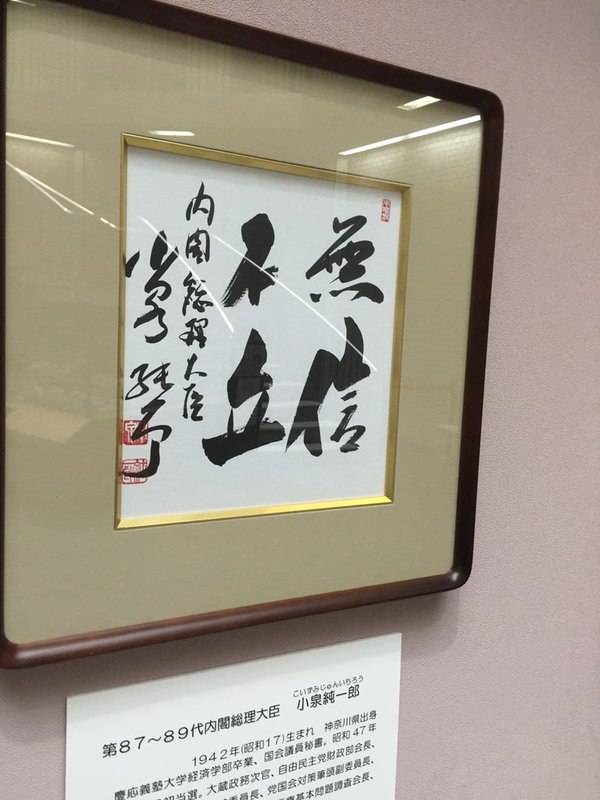 無信
不立
内閣総理大臣
小泉純一郎
第87～89代内閣総理大臣　小泉純一郎
こいずみじゅんいちろう
1942年(昭和17)生まれ　神奈川県出身
慶応義塾大学経済学部卒業、国会議員秘書。昭和47年
初当選。大蔵政務次官、自由民主党財政部会長、
委員長、党国会対策筆頭副委員長、
基本問題調査会長、